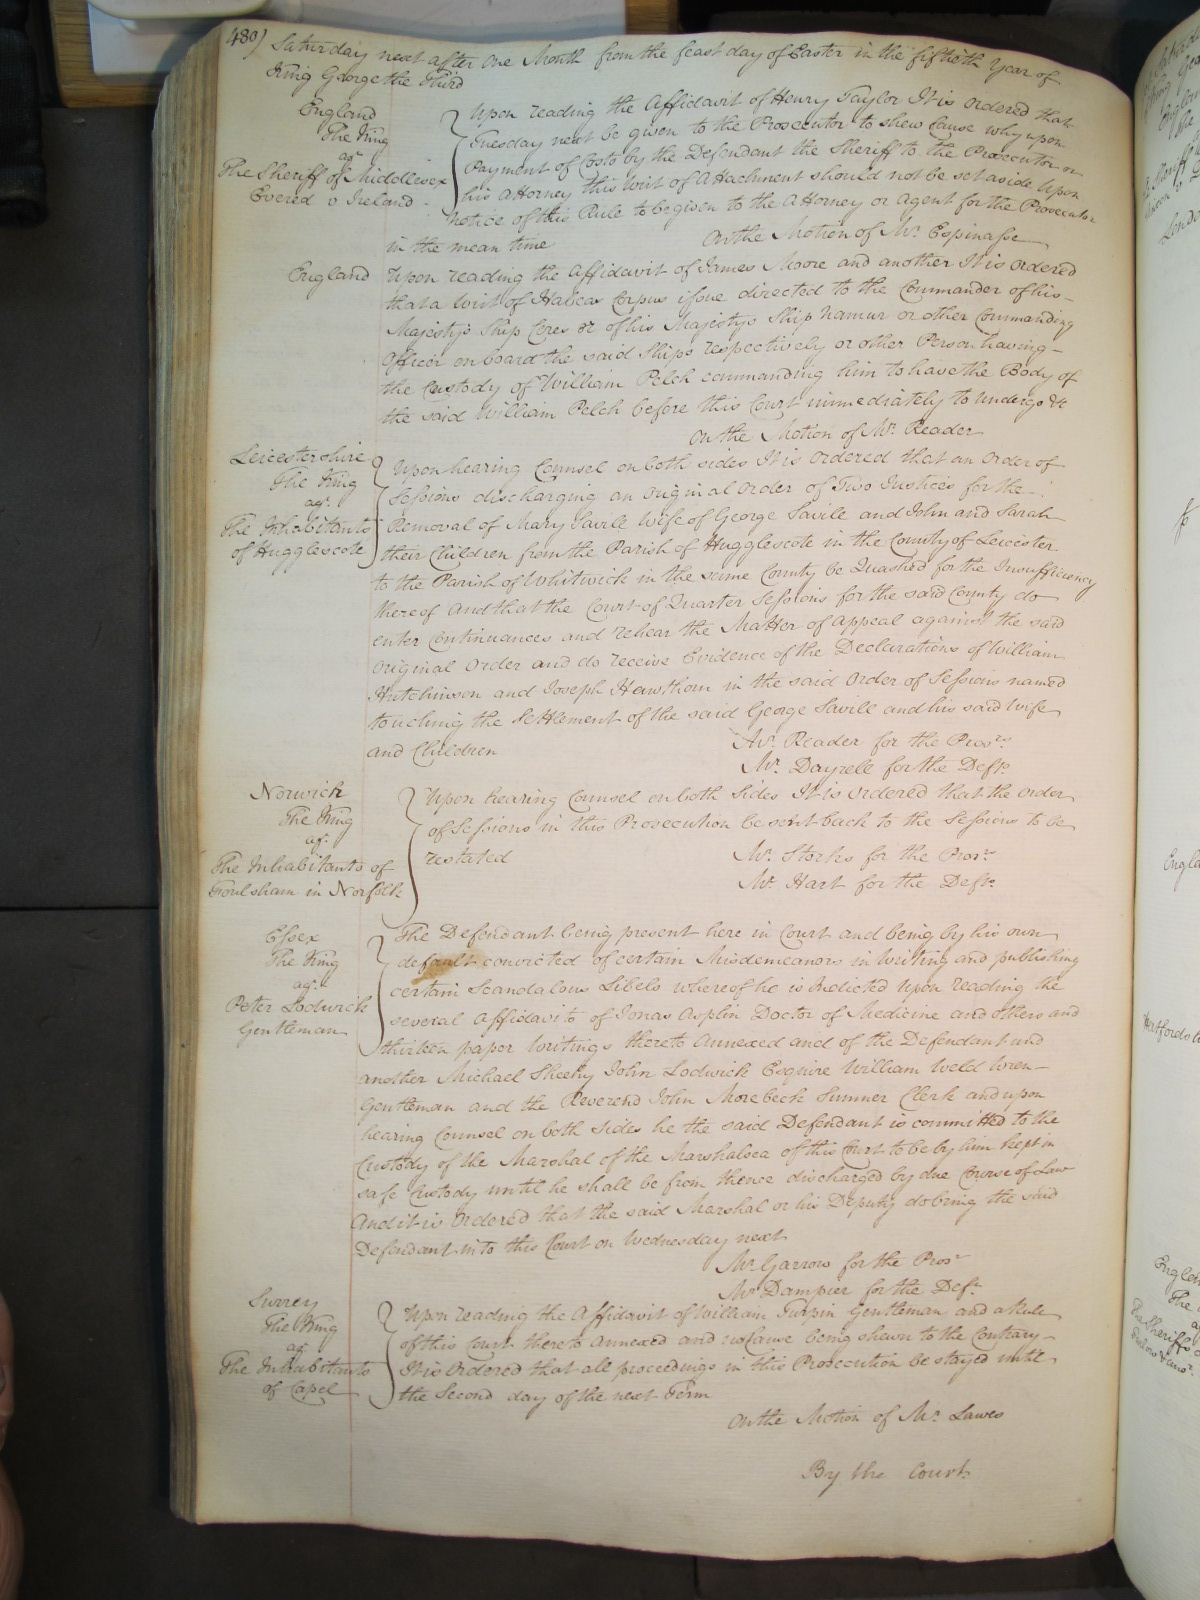 480) Saturday next after One Month from the feast day of Easter in the fiftieth Year of
King George the Third
England
The King
agt.
The Sheriff of Middlesex
Evered v Ireland
Upon reading the Affidavit of Henry Taylor It is Ordered that
Tuesday next be given to the Prosecutor to shew Cause why upon
Payment of Costs by the Defendant the Sheriff to the Prosecutor or
his Attorney this Writ of Attachment should not be set aside Upon
Notice of this Rule to be given to the Attorney or Agent for the Prosecutor
in the mean time
On the Motion of Mr. Espinasse
England
Upon reading the Affidavit of James Moore and another It is Ordered
that a Writ of Habeas Corpus issue directed to the Commander of his
Majesty's Ship Ceres or of his Majesty's Ship Namur or other Commanding
Officer on board the said Ships respectively or other Person having
the Custody of William Pelch commanding him to have the Body of
the said William Pelch before this Court immediately to undergo &c
On the Motion of Mr. Reader
Leicestershire
The King
agt.
The Inhabitants
of Hugglescote
Upon hearing Counsel on both sides It is Ordered that an Order of
Sessions discharging an Original Order of Two Justices for the
Removal of Mary Savile Wife of George Savill and John and Sarah
their Children from the Parish of Hugglescote in the County of Leicester
to the Parish of Whitwick in the same County be Quashed for the Insufficiency
thereof And that the Court of Quarter Sessions for the said County do
enter Continuances and rehear the Matter of Appeal against the said
Original Order and do receive Evidence of the Declarations of William
Hutchinson and Joseph Hawthorn in the said Order of Sessions named
touching the Settlement of the said George Savill and his said Wife
and Children
Mr. Reader for the Prosr.
Mr. Dayrell for the Defts.
Norwich
The King
agt.
The Inhabitants of
Foulsham in Norfolk
Upon hearing Counsel on both sides It is Ordered that the Order
of Sessions in this Prosecution be sent back to the Sessions to be
restated
Mr. Storks for the Prosr.
Mr. Hart for the Defts.
Essex
The King
agt.
Peter Lodwick
Gentleman
The Defendant being present here in Court and being by his own
default convicted of certain Misdemeanors in Writing and publishing
certain Scandalous Libels whereof he is Indicted Upon reading the
several Affidavits of Jonas Asplin Doctor of Medicine and others and
thirteen paper Writings thereto Annexed and of the Defendant and
another Michael Sheehy John Lodwick Esquire William Weld Wren
Gentleman and the Reverend John Morebeck Sumner Clerk and upon
hearing Counsel on both Sides he the said Defendant is committed to the
Custody of the Marshal of the Marshalsea of this Court to be by him kept in
safe Custody until he shall be from thence discharged by due Course of Law
And it is Ordered that the said Marshal or his Deputy do bring the said
Defendant into this Court on Wednesday next
Mr. Garrow for the Prosr
Mr. Dampier for the Deft.
Surrey
The King
agt.
The Inhabitants
of Capel
Upon reading the Affidavit of William Turpin Gentleman and a Rule
of this Court thereto Annexed and no Cause being shewn to the Contrary
It is Ordered that all proceedings in this Prosecution be stayed until
the Second day of the next Term
On the Motion of Mr. Lawes
By the Court